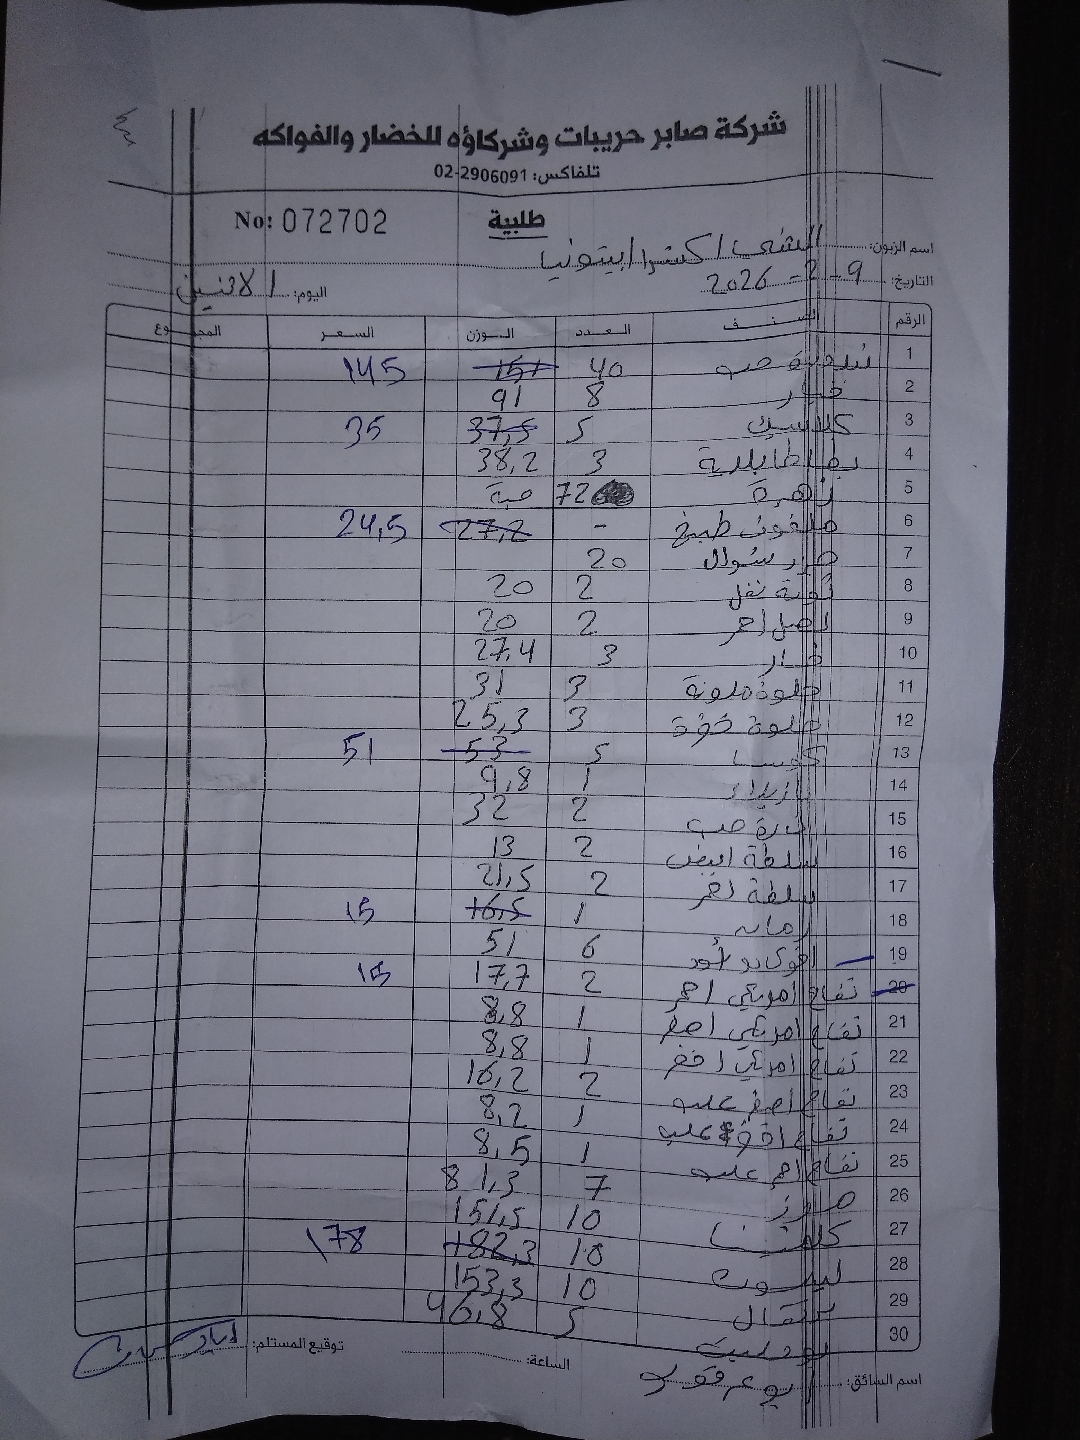 شركة صابر حريبات وشركاؤه للخضار والفواكه
تلفاكس: 02-2906091
No: 072702
طلبية
اسم الزبون: اكسترا بيتونيا
التاريخ: 9-2-2026 اليوم: الاثنين
الرقم الصنف العدد الوزن السعر المجموع
1 بندورة حب 40 151 145
2 خيار 8 91
3 كلاسيك 5 37,5 35
4 بطاطا بلدية 3 38,2
5 زهرة 72 حبة
6 ملفوف طبيخ - 27,2 24,5
7 جزر شوال 20
8 ثومة نفل 2 20
9 بصل احمر 2 20
10 3 27,4
11 حلوة ملونة 3 31
12 حلوة 3 25,3
13 كوسا 5 53 51
14 1 9,8
15 ذرة حب 2 32
16 سلطة ابيض 2 13
17 سلطة احمر 2 21,5
18 رمان 1 16,5 15
19 افوكادو 6 51
20 تفاح امريكي احمر 2 17,7 15
21 تفاح امريكي اصفر 1 8,8
22 تفاح امريكي اخضر 1 8,8
23 تفاح اصفر علب 2 16,2
24 تفاح علب 1 8,2
25 تفاح احمر علب 1 8,5
26 موز 7 81,3
27 كلمنتينا 10 151,5
28 10 182,3 178
29 برتقال 10 153,3
30 بوملي 5 46,8
اسم السائق: ابو الساعة: توقيع المستلم: